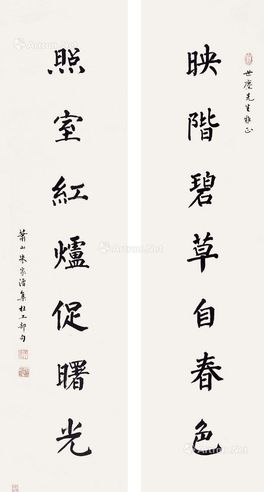 世㢆先生雅正
映階碧草自春色
照室紅爐促曙光
蕭山朱家濟集杜工部句